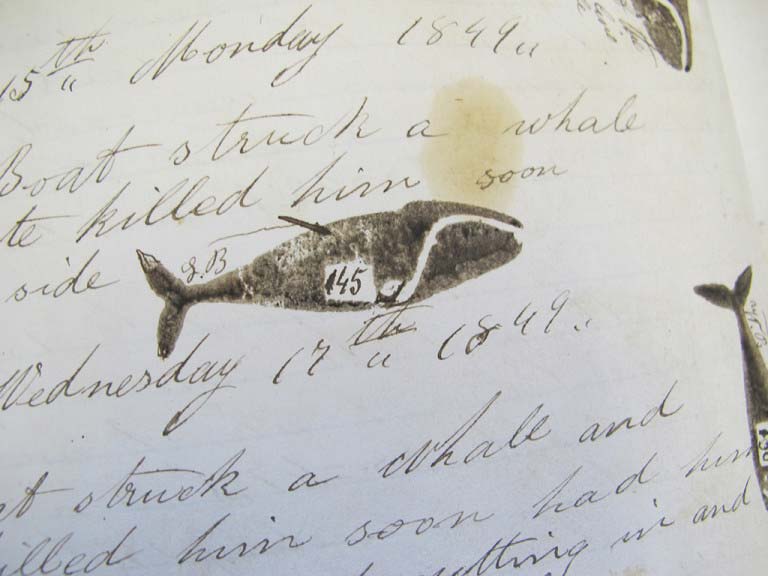 15th Monday 1849
Boat struck a whale
te killed him soon
side
L.B
145
Wednesday 17th 1849
at struck a whale and
illed him soon had him
in and